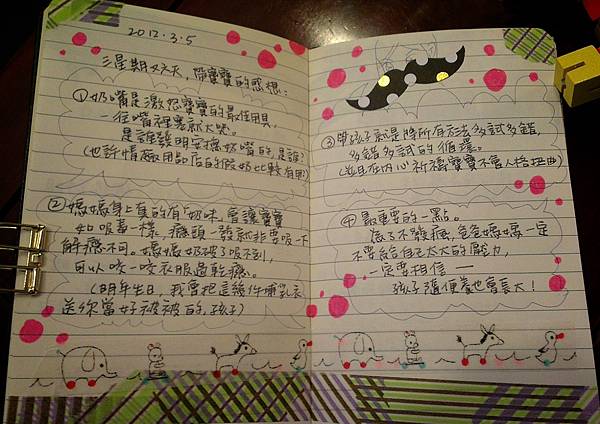 2012.3.5
三星期又六天,帶寶寶的感想:
①奶嘴是激怒寶寶的最佳用具,
一往嘴裡塞就大哭。
是誰發明安撫奶嘴的,是誰?
(也許情趣用品店的假奶比較有用)
②媽媽身上真的有「奶味」,會讓寶寶
如吸毒一樣,癮頭一發就非要吸一下
解癮不可。媽媽奶破了吸不到,
可以咬一咬衣服過乾癮。
(明年生日,我會把這幾件哺乳衣
送你當好被被的,孩子)
③帶孩子就是將所有方法多試多錯,
多錯多試的循環。
(並且在內心祈禱寶寶不會人格扭曲)
④最重要的一點。
為了不發瘋,爸爸媽媽一定
不要給自己太大的壓力,
一定要相信——
孩子隨便養也會長大!